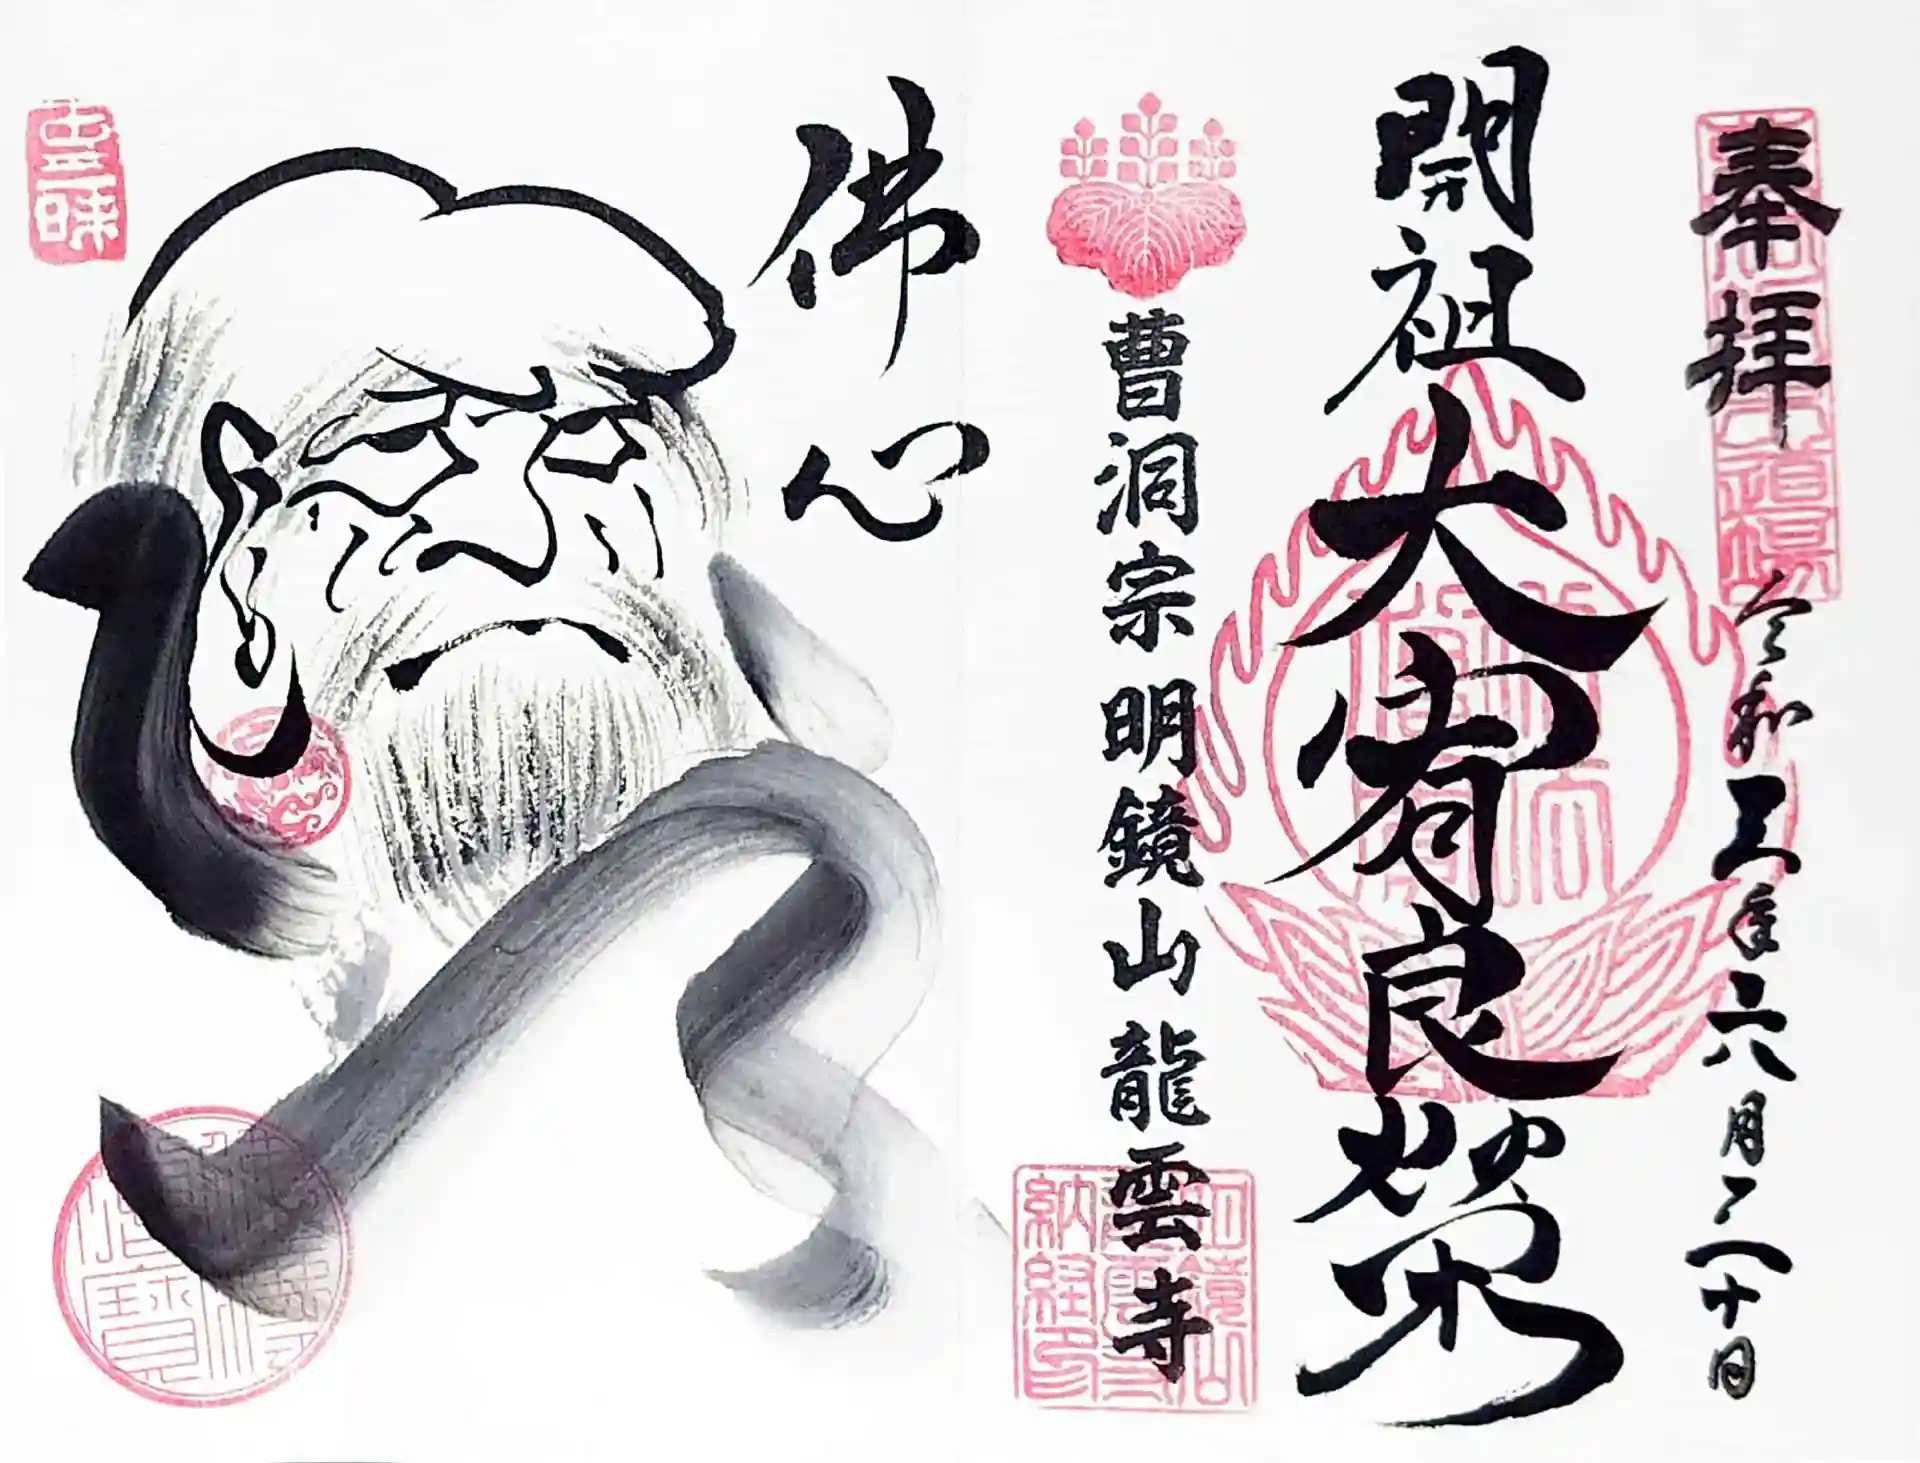 奉拝
令和五年六月二十日
開祖大宥良榮
曹洞宗明鏡山龍雲寺
佛心